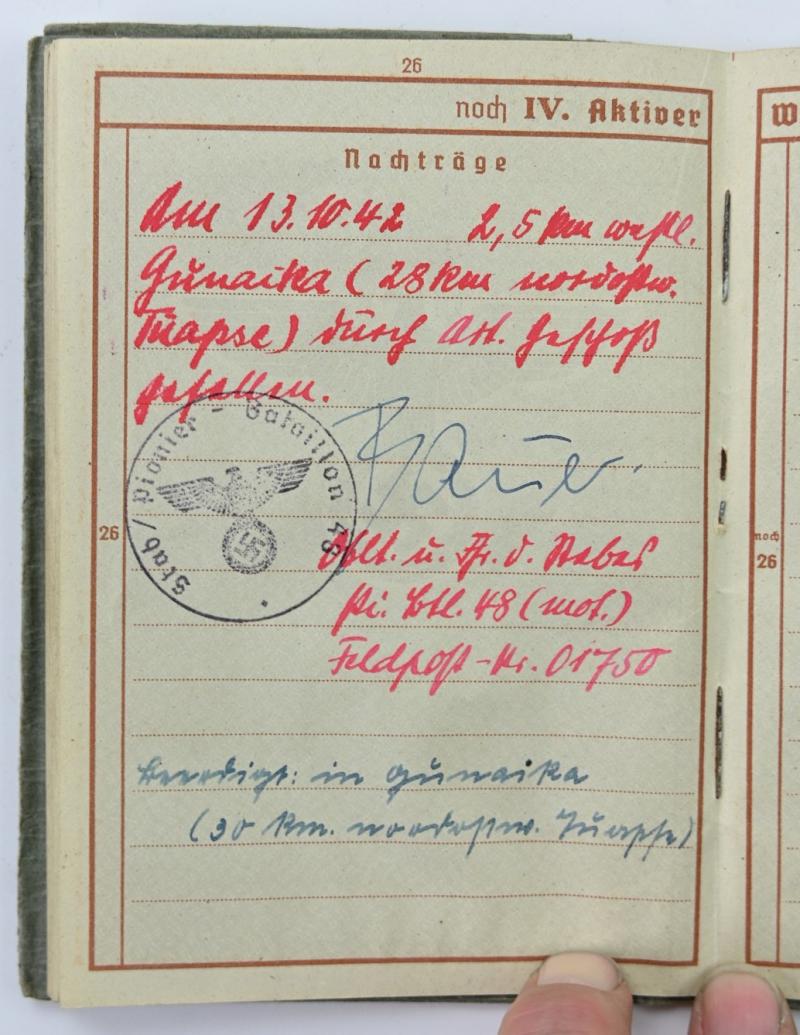 26
noch IV. Aktiver
Nachträge
Am 13.10.42 2,5 km westl.
Gunaika (28 km nordostw.
Tuapse) durch Art. Geschoß
gefallen.
Stab/Pionier-Bataillon 48
Bauer
26
Oblt. u. Fr. d. Stabes
Pi. Btl. 48 (mot.)
Feldpost-Nr. 01750
Beerdigt: in Gunaika
(30 km. nordostw. Tuapse)
W
noch
26